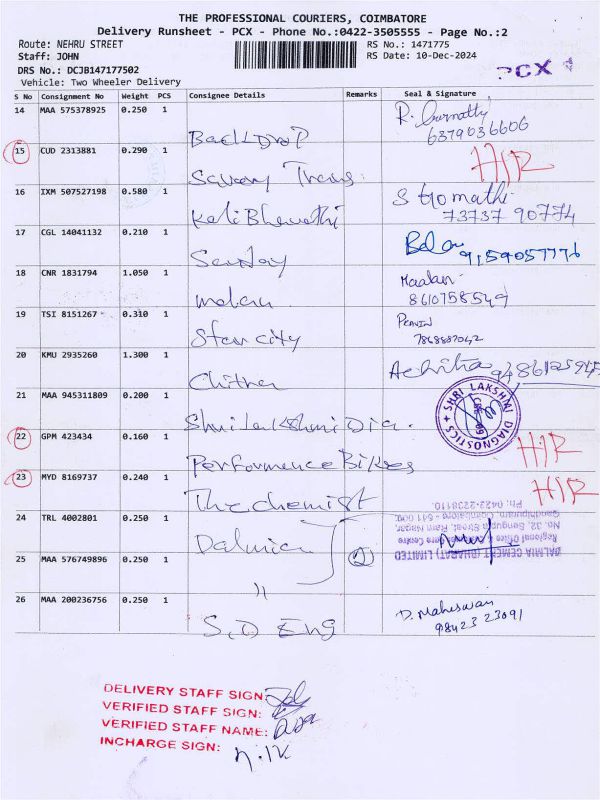 THE PROFESSIONAL COURIERS, COIMBATORE
Delivery Runsheet - PCX - Phone No.:0422-3505555 - Page No.:2
Route: NEHRU STREET
RS No.: 1471775
Staff: JOHN
RS Date: 10-Dec-2024
DRS No.: DCJB147177502
PCX
Vehicle: Two Wheeler Delivery
S No Consignment No Weight PCS Consignee Details Remarks Seal & Signature
14 MAA 575378925 0.250 1
BackDrop
6379036606
15 CUD 2313881 0.290 1
H/R
16 IXM 507527198 0.580 1
S Gomathi
73737 90774
17 CGL 14041132 0.210 1
Sunday
9159057776
18 CNR 1831794 1.050 1
8610758549
19 TSI 8151267 0.310 1
Star city
7868887042
20 KMU 2935260 1.300 1
21 MAA 945311809 0.200 1
SHRI LAKSHMI DIAGNOSTICS
22 GPM 423434 0.160 1
Performence Bikes
H/R
23 MYD 8169737 0.240 1
The chemist
H/R
24 TRL 4002801 0.250 1
Dalmia
2
DALMIA CEMENT (BHARAT) LIMITED
No. 32, Sengupta Street, Ram Nagar,
Ph: 0422-2238110.
25 MAA 576749896 0.250 1
"
26 MAA 200236756 0.250 1
S.D Eng
D. Maheswari
98423 23091
DELIVERY STAFF SIGN:
VERIFIED STAFF SIGN:
VERIFIED STAFF NAME:
INCHARGE SIGN: